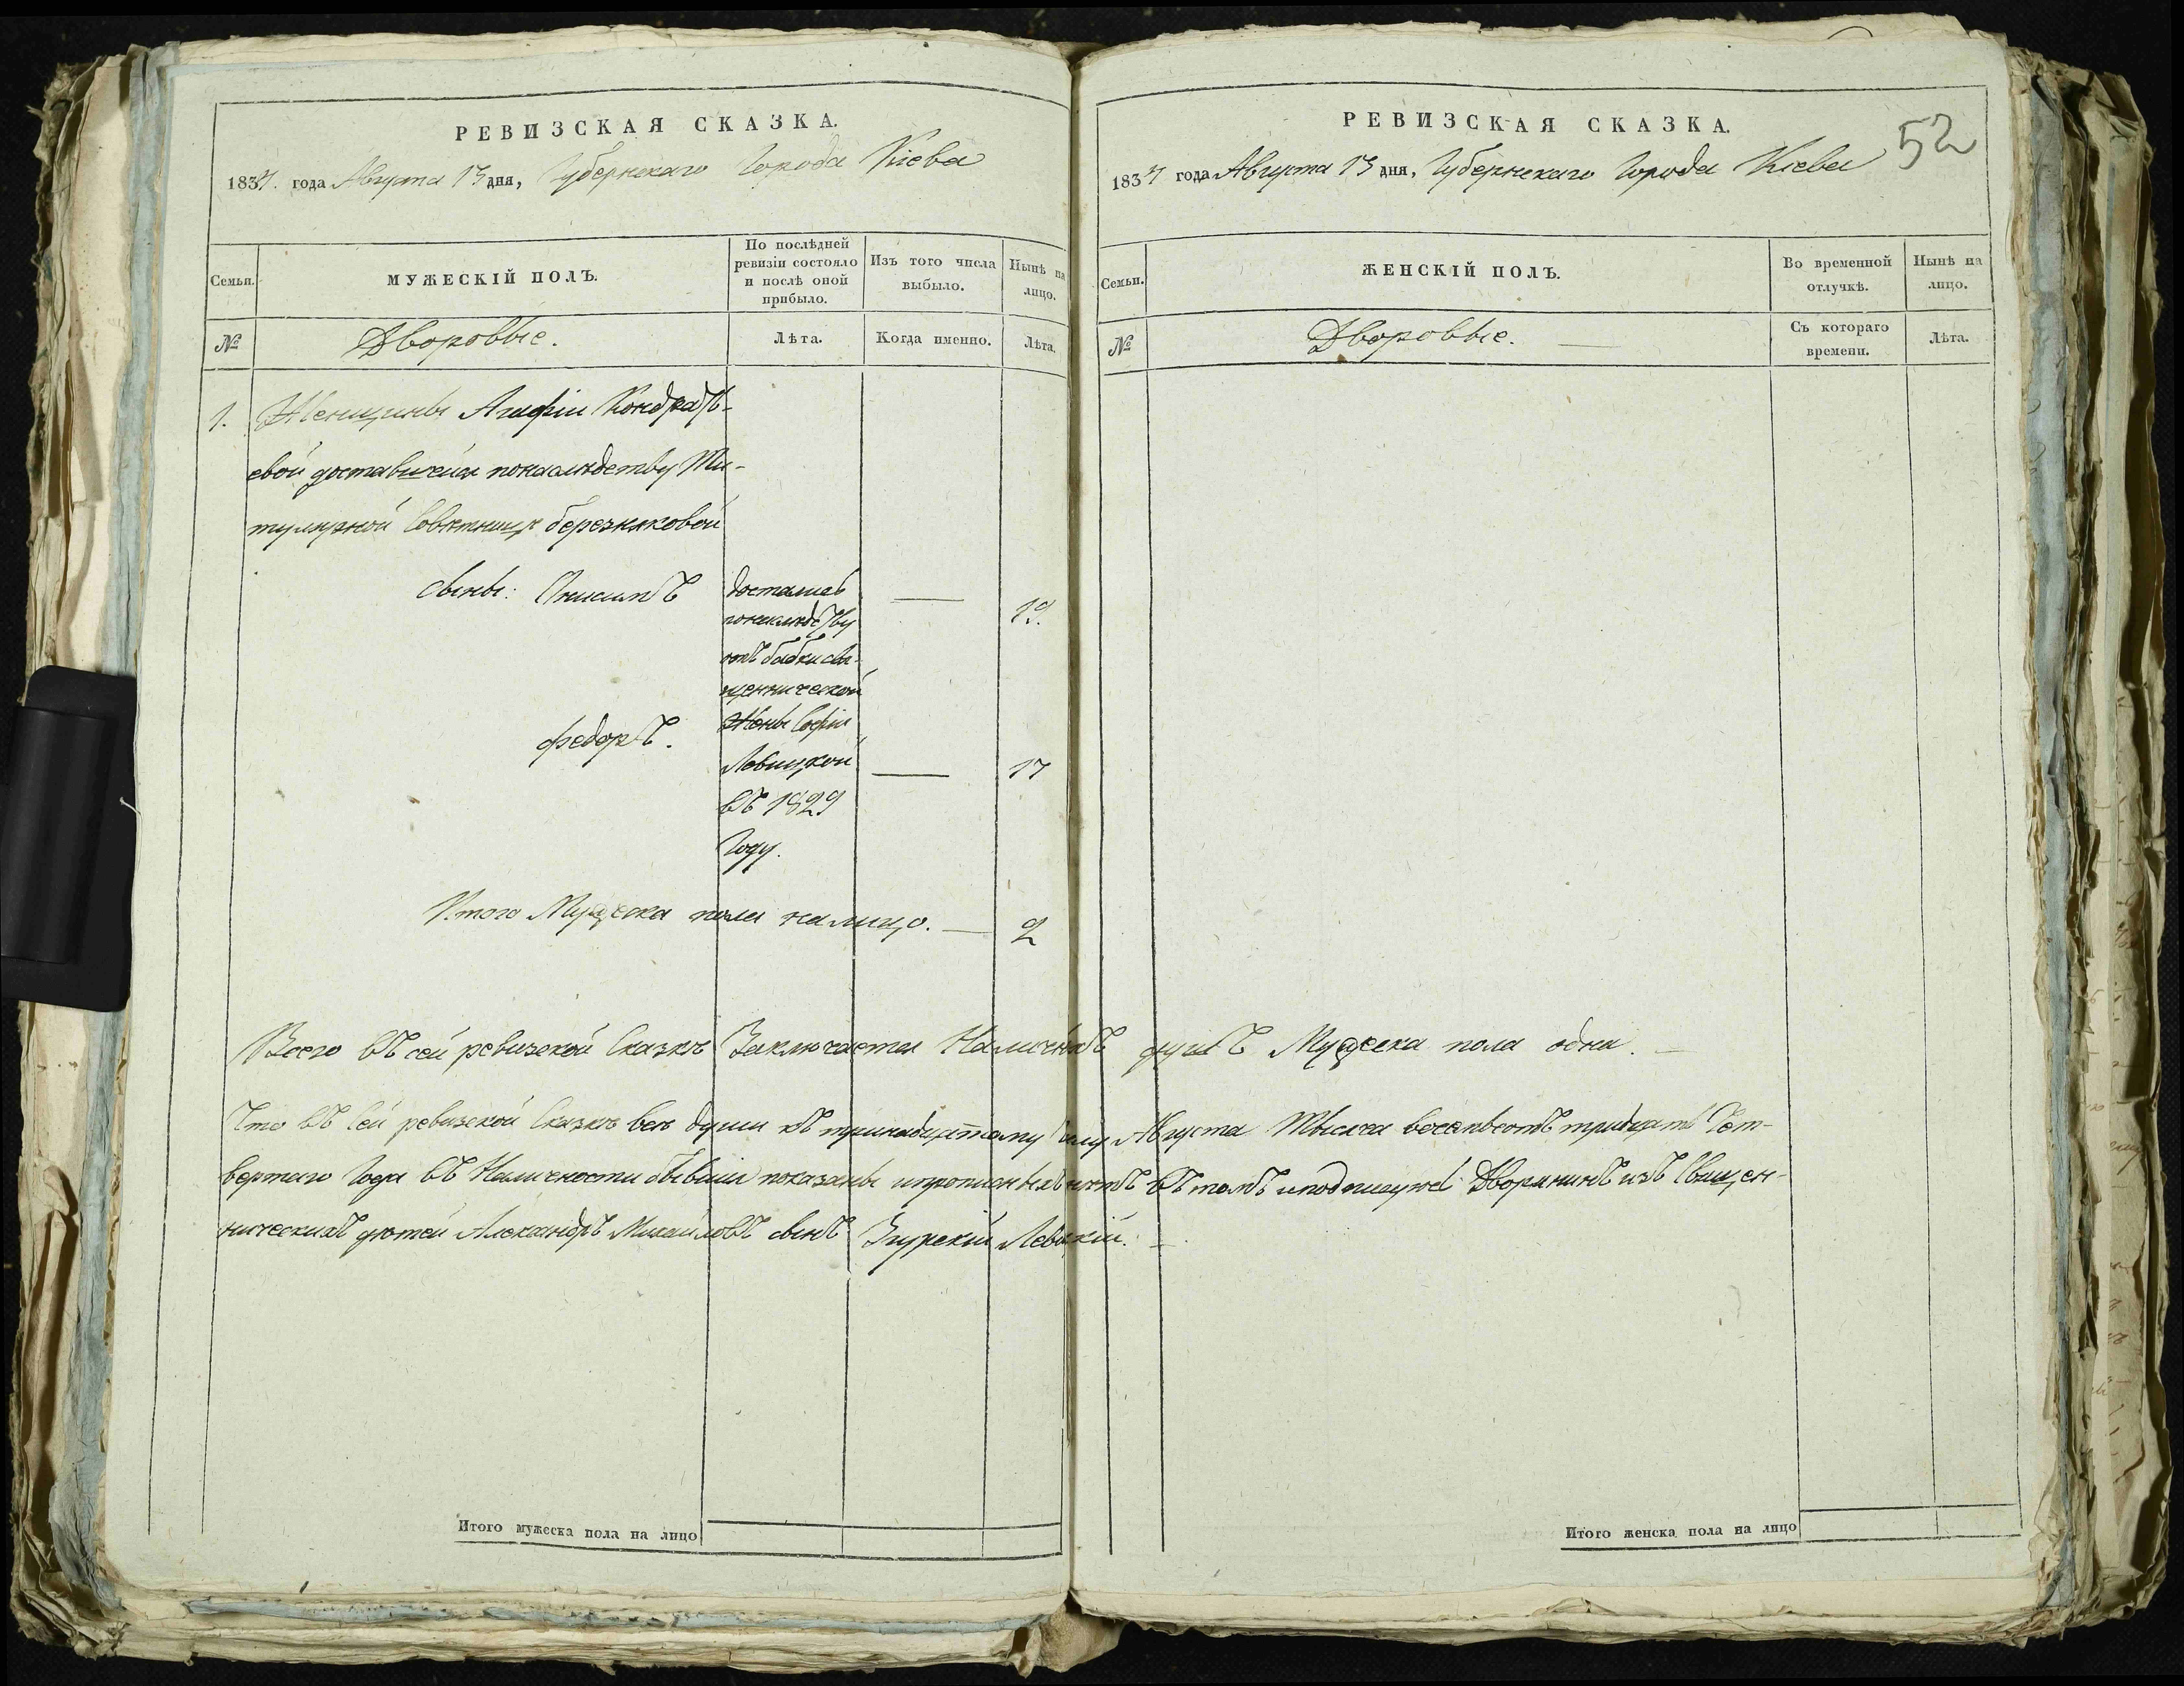 РЕВИЗСКАЯ СКАЗКА.
1834. года Августа 13 дня, Губернскаго Города Кіева
Семьи.
МУЖЕСКІЙ ПОЛЪ.
По послѣдней ревизіи состояло и послѣ оной прибыло.
Изъ того числа выбыло.
Нынѣ на лицо.
№
Дворовые.
Лѣта.
Когда именно.
Лѣта.
1. Женщины Агафіи Кондрать-
евой доставшейся понаслѣдству Ти-
тулярной Совѣтницѣ Березняковой
сыны: Онисимъ
достались
понаслѣдству
отъ бабки свя-
щеннической
Жены Софіи
Левицкой
въ 1829
Году.
— 19.
Федоръ.
— 17
Итого Мужеска пола налицо. — 2
Всего въ сей ревизской Сказкѣ Заключается Наличныхъ душъ Мужеска пола одна. —
Что въ Сей ревизской Сказкѣ всѣ души къ тринадцатому Августа Тысяча восемьсотъ тридцать Чет-
вертаго Года въ Наличности бывшія показаны и прописныхъ нѣтъ въ томъ и подписуюсь Дворянинъ изъ Священ-
ническихъ дѣтей Александръ Михайловъ сынъ Згурскій Левицкій. —
Итого мужеска пола на лицо
РЕВИЗСКАЯ СКАЗКА.
52
1834 года Августа 13 дня, Губернскаго Города Кіева
Семьи.
ЖЕНСКІЙ ПОЛЪ.
Во временной отлучкѣ.
Нынѣ на лицо.
№
Дворовые. —
Съ котораго времени.
Лѣта.
Итого женска пола на лицо